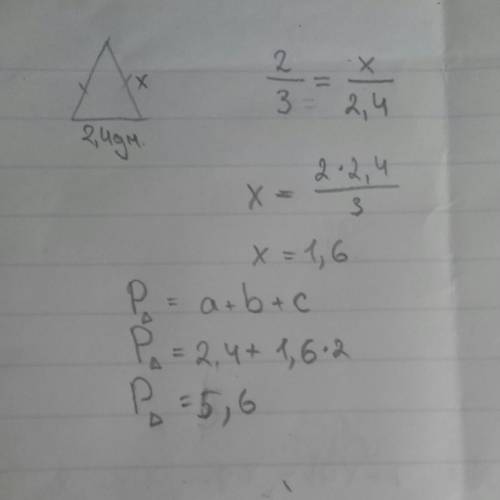 x
2,4дм.
2/3 = x/2,4
x = 2·2,4/3
x = 1,6
P△ = a+b+c
P△ = 2,4+1,6·2
P△ = 5,6